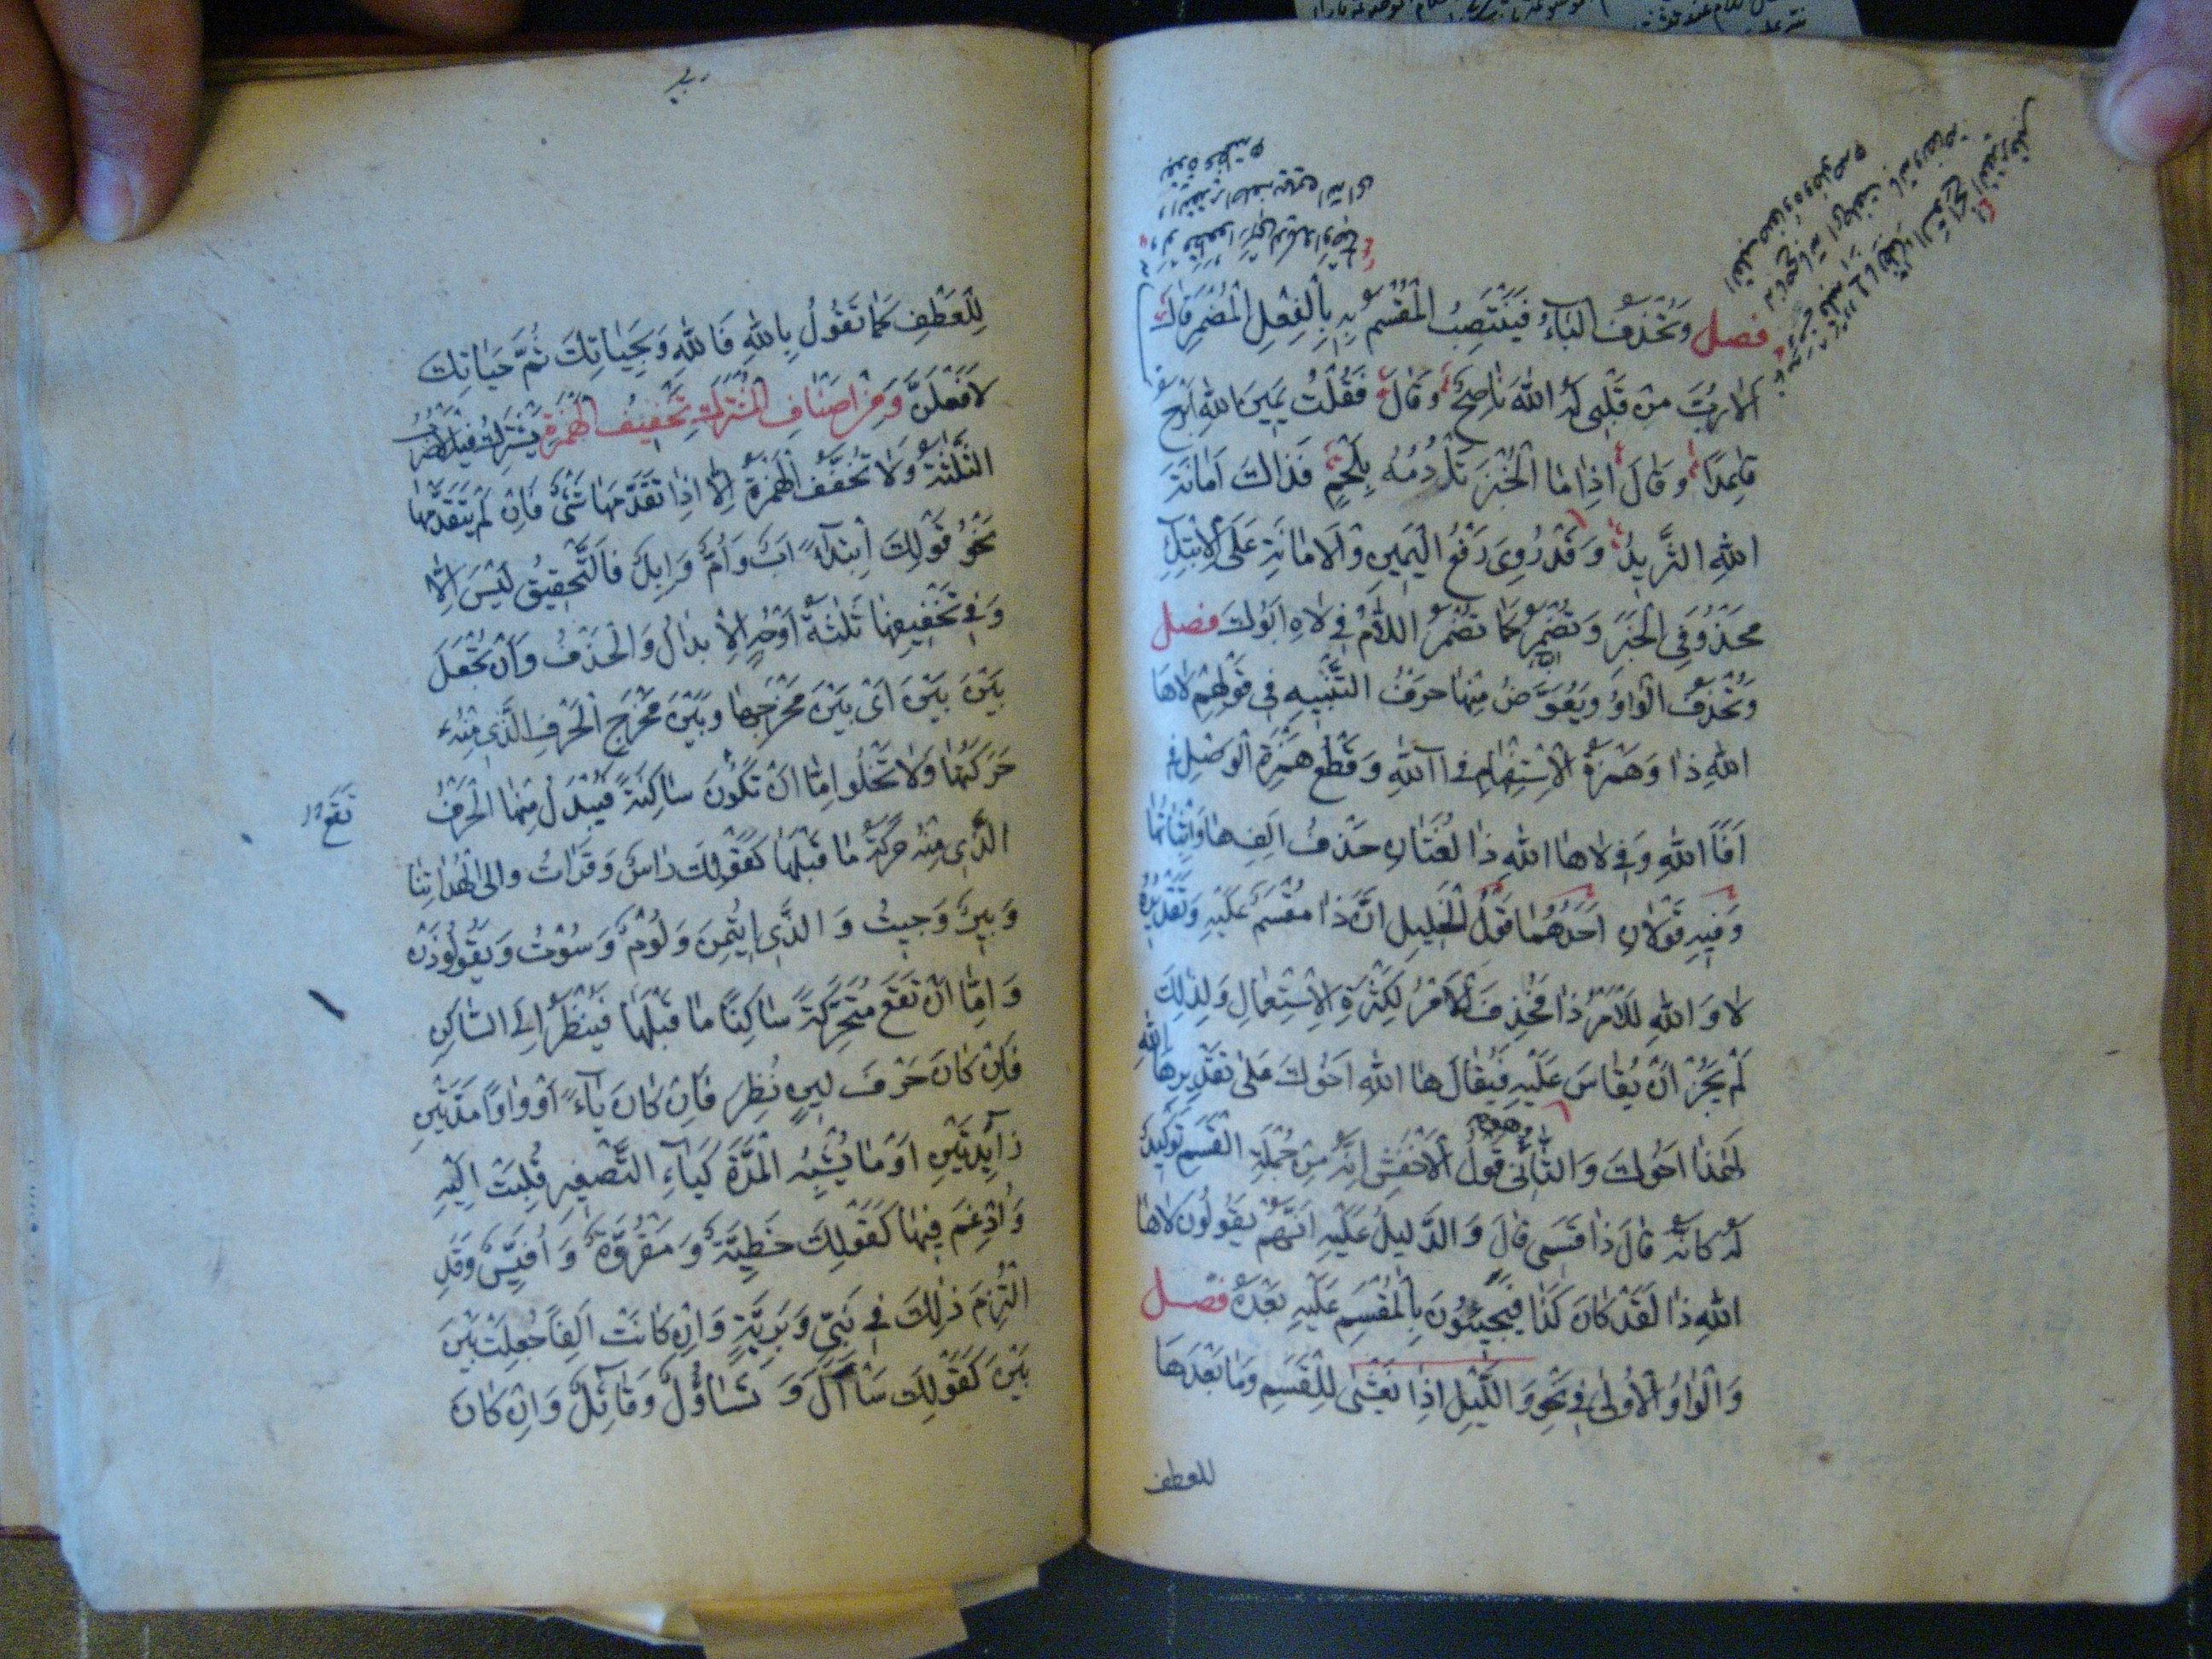 فصل وَتُحْذَفُ البَاءُ فَيَنْتَصِبُ الْمُقْسَمُ بِهِ بِالْفِعْلِ الْمُضْمَرِ قَالَ
اَلَا رُبَّ مَنْ قَلْبِي لَهُ اللهَ نَاصِحٌ وَقَالَ فَقُلْتُ يَمِينَ اللهِ اَبْرَحُ
قَاعِدًا وَقَالَ اِذَا مَا الْخُبْزُ تَأْدِمُهُ بِلَحْمٍ فَذَاكَ اَمَانَةَ
اللهِ الثَّرِيدُ وَقَدْ رُوِيَ رَفْعُ الْيَمِينِ وَالْاَمَانَةِ عَلَى الْاِبْتِدَاءِ
مَحْذُوفَيِ الْخَبَرِ وَتُضْمَرُ كَمَا تُضْمَرُ اللَّامُ فِي لَاهِ اَبُوكَ فصل
وَتُحْذَفُ الْوَاوُ وَيُعَوَّضُ مِنْهَا حَرْفُ التَّنْبِيهِ فِي قَوْلِهِمْ لَا هَا
اللهِ ذَا وَهَمْزَةُ الْاِسْتِفْهَامِ فِي اآللهِ وَقَطْعُ هَمْزَةِ الْوَصْلِ فِي
اَفَاَللهِ وَفِي لَا هَا اللهِ ذَا لُغَتَانِ حَذْفُ اَلِفِ هَا وَاِثْبَاتُهَا
وَفِيهِ قَوْلَانِ اَحَدُهُمَا قَوْلُ الْخَلِيلِ اَنَّ ذَا مُقْسَمٌ عَلَيْهِ وَتَقْدِيرُهُ
لَا وَاللهِ لَلْاَمْرُ ذَا فَحُذِفَ الْاَمْرُ لِكَثْرَةِ الْاِسْتِعْمَالِ وَلِذٰلِكَ
لَمْ يَجُزْ اَنْ يُقَاسَ عَلَيْهِ فَيُقَالَ هَا اللهِ اَخُوكَ عَلٰى تَقْدِيرِ هَا اللهِ
لَهٰذَا اَخُوكَ وَالثَّانِي وَهُوَ قَوْلُ الْاَخْفَشِ اِنَّهُ مِنْ جُمْلَةِ الْقَسَمِ تَوْكِيدٌ
لَهُ كَاَنَّهُ قَالَ ذَا قَسَمِي قَالَ وَالدَّلِيلُ عَلَيْهِ اَنَّهُمْ يَقُولُونَ لَا هَا
اللهِ ذَا لَقَدْ كَانَ كَذَا فَيَجِيئُونَ بِالْمُقْسَمِ عَلَيْهِ بَعْدَهُ فصل
وَالْوَاوُ الْاُولٰى فِي نَحْوِ وَاللَّيْلِ اِذَا يَغْشٰى لِلْقَسَمِ وَمَا بَعْدَهَا
للعطف
لِلْعَطْفِ كَمَا تَقُولُ بِاللهِ فَاللهِ وَبِحَيَاتِكَ ثُمَّ حَيَاتِكَ
لَاَفْعَلَنَّ وَمِنْ اَصْنَافِ الْمُشْتَرَكِ تَخْفِيفُ الْهَمْزَةِ يَشْتَرِكُ فِيهِ الْاَضْرُبُ
الثَّلٰثَةُ وَلَا تُخَفَّفُ الْهَمْزَةُ اِلَّا اِذَا تَقَدَّمَهَا شَيْءٌ فَاِنْ لَمْ يَتَقَدَّمْهَا
نَحْوُ قَوْلِكَ اِبْتِدَاءً اَبٌ وَاُمٌّ وَاِبِلٌ فَالتَّحْقِيقُ لَيْسَ اِلَّا
وَفِي تَخْفِيفِهَا ثَلٰثَةُ اَوْجُهٍ الْاِبْدَالُ وَالْحَذْفُ وَاَنْ تُجْعَلَ
بَيْنَ بَيْنَ اَيْ بَيْنَ مَخْرَجِهَا وَبَيْنَ مَخْرَجِ الْحَرْفِ الَّذِي مِنْهُ
حَرَكَتُهَا وَلَا تَخْلُوا اِمَّا اَنْ تَكُونَ سَاكِنَةً فَيُبْدَلُ مِنْهَا الْحَرْفُ
تَقَعَ
الَّذِي مِنْهُ حَرَكَةُ مَا قَبْلَهَا كَقَوْلِكَ رَاسٌ وَقَرَاتُ وَاِلَى الْهُدَاتِنَا
وَبِيرٌ وَجِيتُ وَالَّذِي ايتُمِنَ وَلُومٌ وَسُوتُ وَيَقُولُوذَنْ
وَاِمَّا اَنْ تَقَعَ مُتَحَرِّكَةً سَاكِنًا مَا قَبْلَهَا فَيُنْظَرُ اِلَى السَّاكِنِ
فَاِنْ كَانَ حَرْفَ لِينٍ نُظِرَ فَاِنْ كَانَ يَاءً اَوْ وَاوًا مَدَّتَيْنِ
زَائِدَتَيْنِ اَوْ مَا يُشْبِهُ الْمَدَّةَ كَيَاءِ التَّصْغِيرِ قُلِبَتْ اِلَيْهِ
وَاُدْغِمَ فِيهَا كَقَوْلِكَ خَطِيَّةٌ وَمَقْرُوَّةٌ وَاُفَيِّسٌ وَقَدِ
الْتُزِمَ ذٰلِكَ فِي نَبِيٍّ وَبَرِيَّةٍ وَاِنْ كَانَتْ اَلِفًا جُعِلَتْ بَيْنَ
بَيْنَ كَقَوْلِكَ سَاآلَ وَتَسَاؤُلٌ وَقَائِلٌ وَاِنْ كَانَ